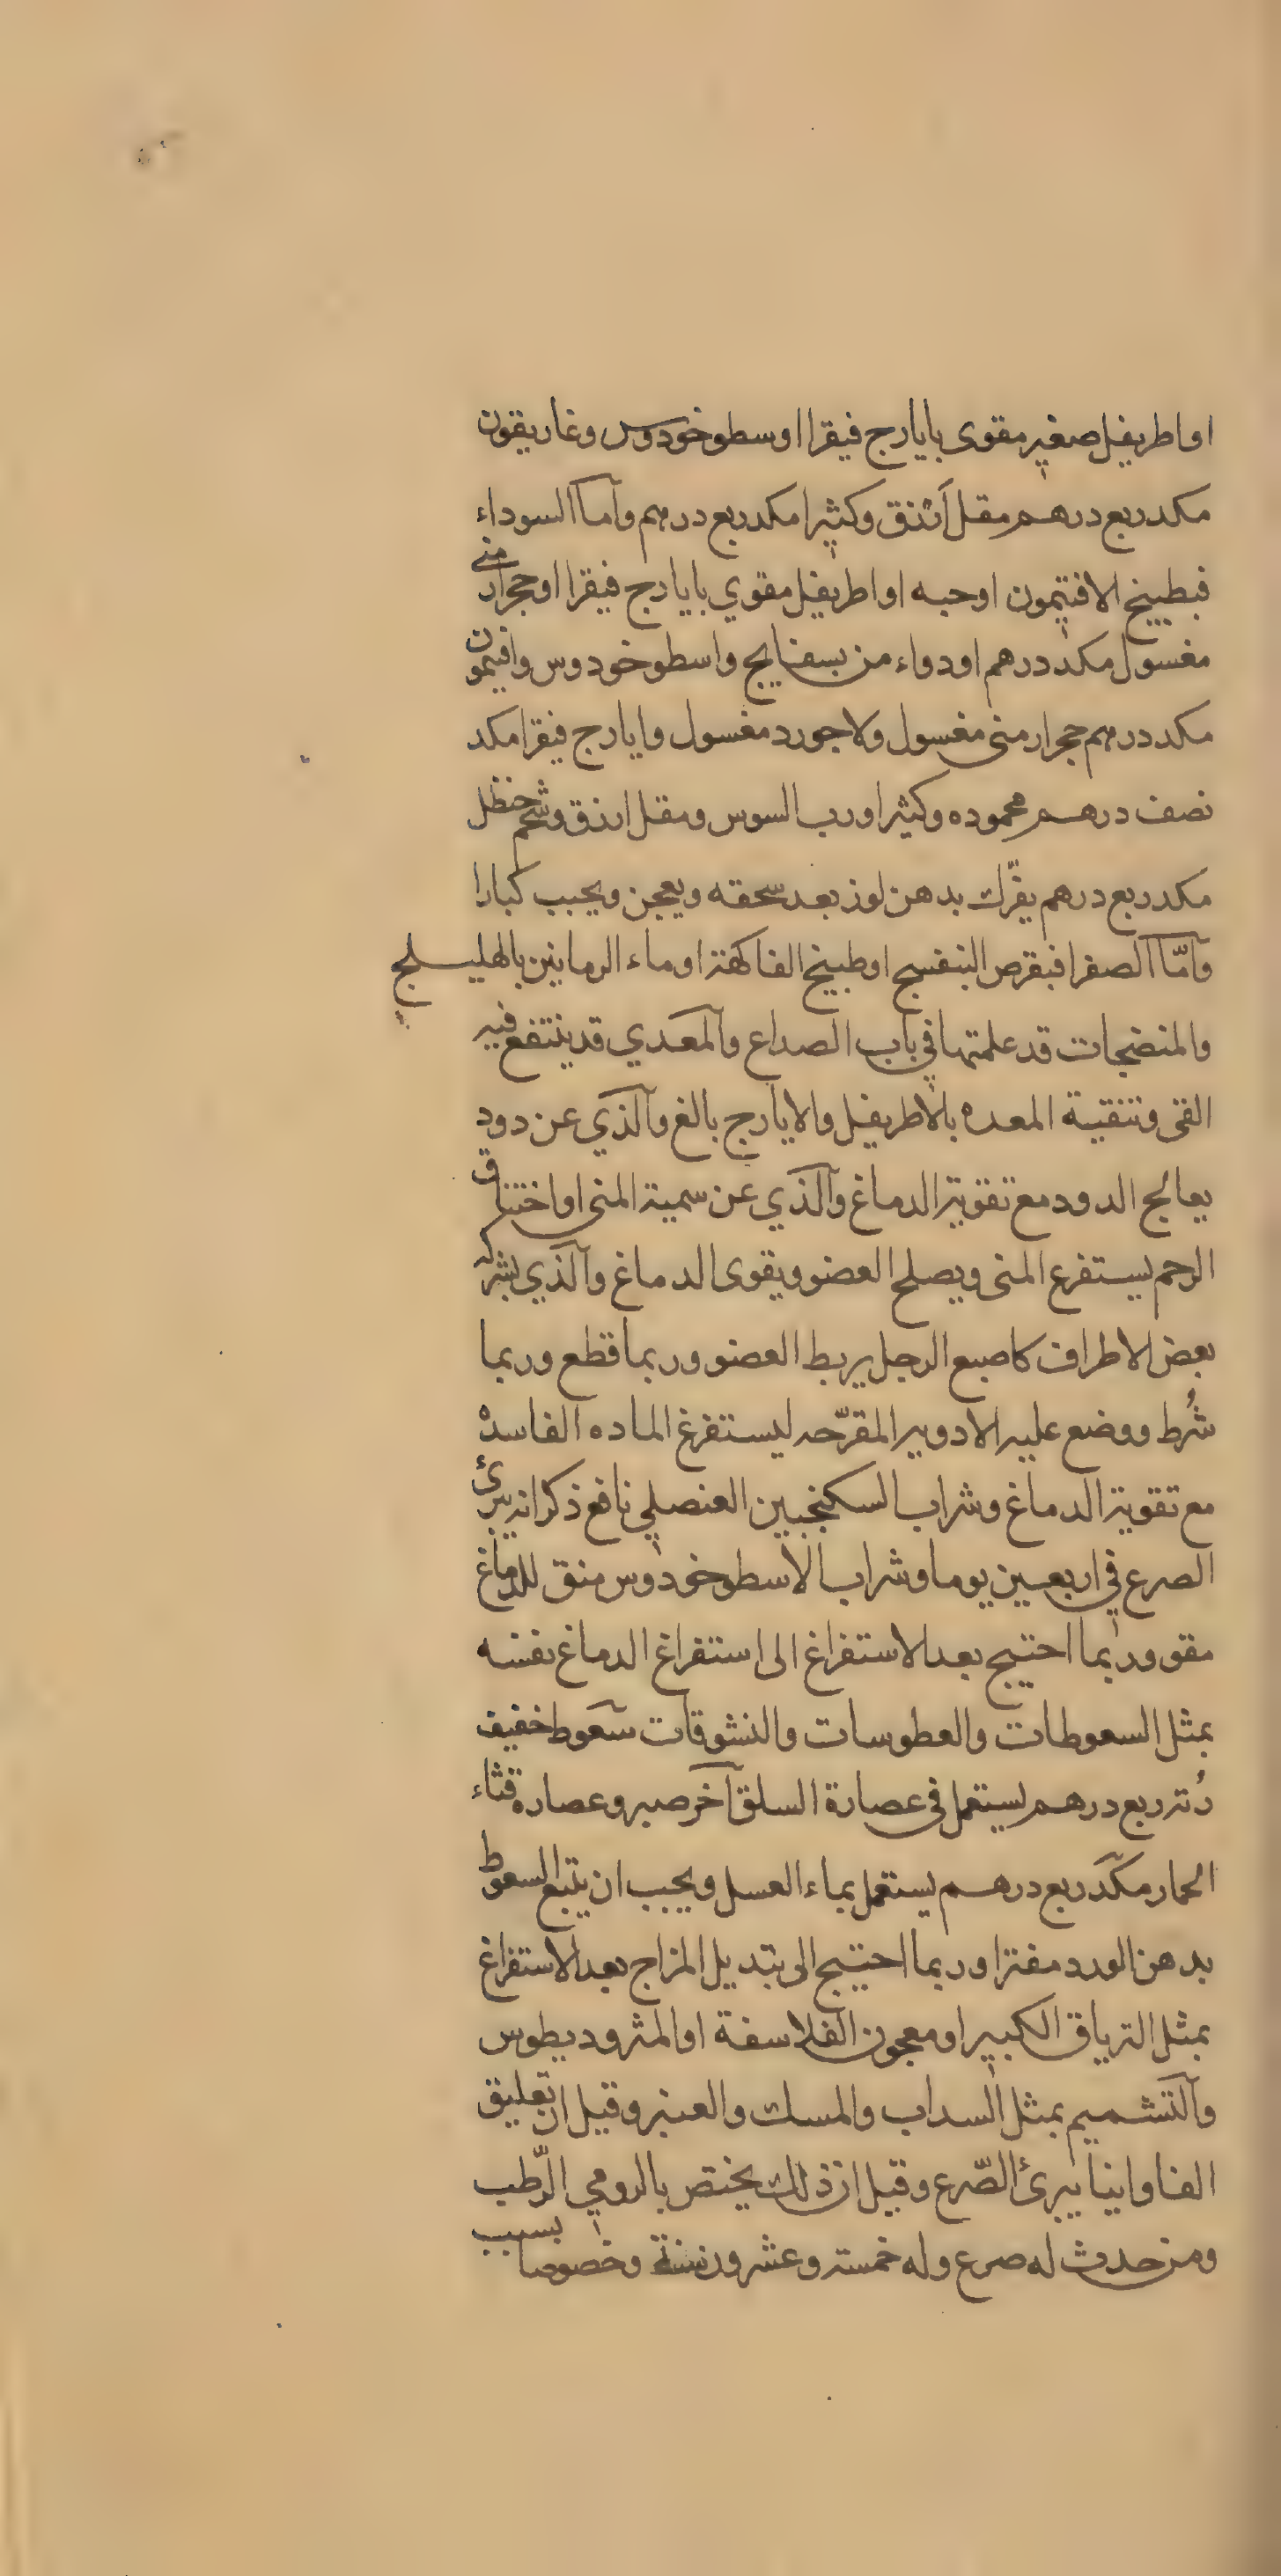 او اطريفل صغير مقوى بايارج فيقرا اوسطوخودوس وغاريقون
مكد ربع درهم مقل أزرق وكثيرا مكد ربع درهم وأما السوداء
فبطبيخ الافتيمون او حبه او اطريفل مقوي بايارج فيقرا او حجر ارمنى
مغسول مكد درهم او دواء من بسفايج واسطوخودوس وافتيمون
مكد درهم حجر ارمنى مغسول ولاجورد مغسول وايارج فيقرا مكد
نصف درهم محموده وكثيرا ورب السوس ومقل ازرق وشحم حنظل
مكد ربع درهم يفرّك بدهن لوز بعد سحقه ويعجن ويحبب كبارا
وأمّا الصفرا فبقرص البنفسج او طبيخ الفاكهة او ماء الرمانين بالهليلج
والمنضجات قد علمتها في باب الصداع والمعدي قد ينتفع فيه
القى وتنقية المعده بالاطريفل والايارج بالغ والذي عن دود
يعالج الدود مع تقوية الدماغ والذي عن سمية المنى او اختناق
الرحم يستفرغ المنى ويصلح العضو ويقوى الدماغ والذي بشركه
بعض الاطراف كاصبع الرجل يربط العضو وربما قطع وربما
شُرط ووضع عليه الادويه المقرّحه ليستفرغ الماده الفاسده
مع تقوية الدماغ وشراب السكنجبين العنصلي نافع ذكر انه يبرئ
الصرع في اربعين يوما وشراب الاسطوخودوس منق للدماغ
مقو وربما احتيج بعد الاستفراغ الى استفراغ الدماغ نفسه
بمثل السعوطات والعطوسات والنشوقات سعوط خفيف
رُته ربع درهم يستعمل في عصارة السلق آخر صبر وعصاره قثاء
الحمار مكد ربع درهم يستعمل بماء العسل ويجب ان يتبع السعوط
بدهن الورد مفترا وربما احتيج الى تبديل المزاج بعد الاستفراغ
بمثل الترياق الكبير او معجون الفلاسفة او المثروديطوس
والتشميم بمثل السداب والمسك والعنبر وقيل ان تعليق
الفاوانيا يبرئ الصّرع وقيل ان ذلك يختص بالرومي الرّطب
ومن حدث له صرع وله خمسة وعشرون سنة وخصوصا بسبب